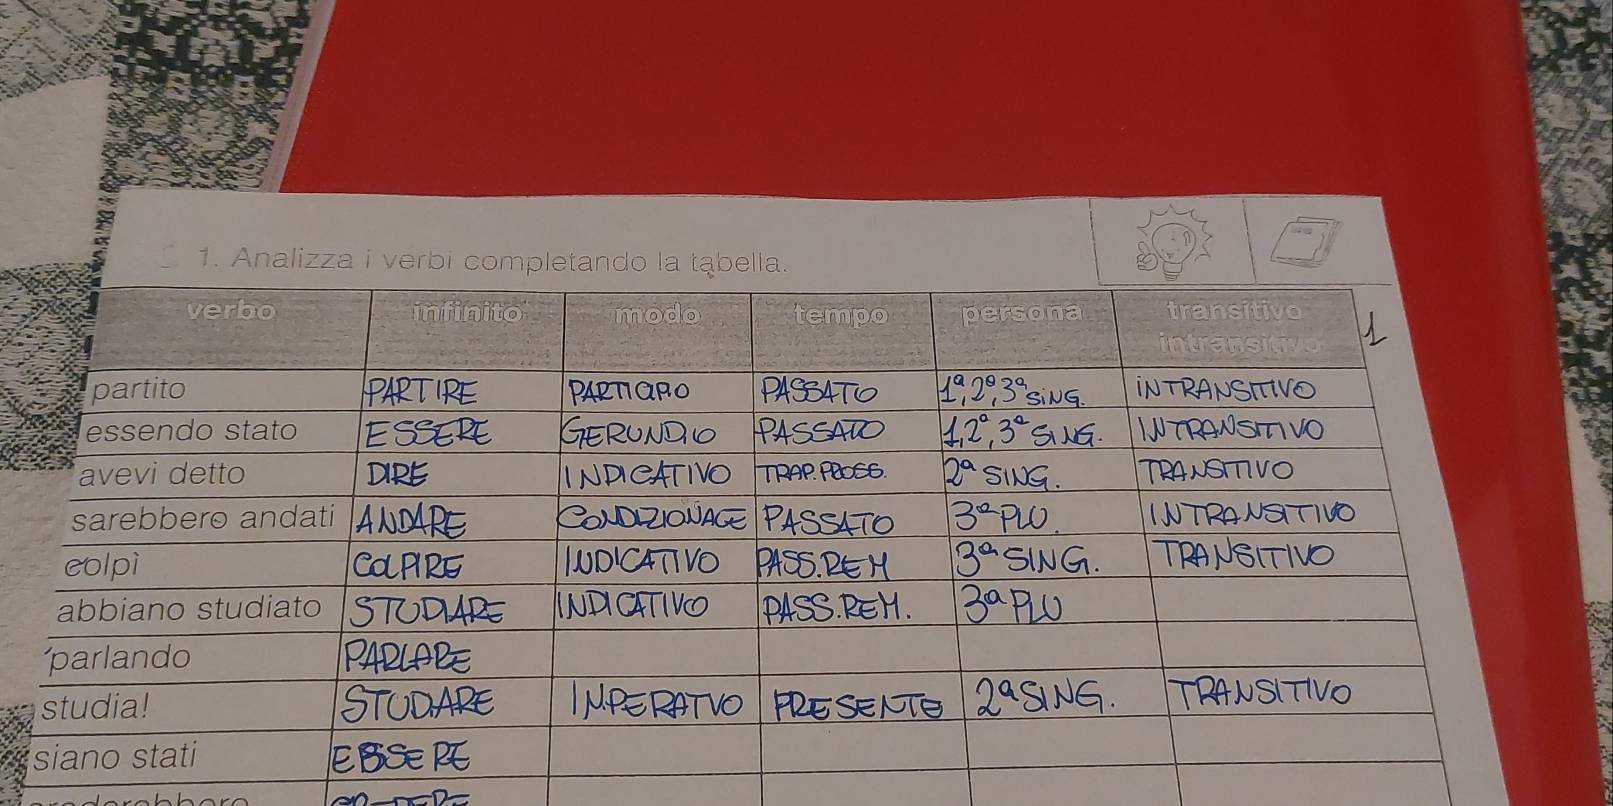 1. Analizza i verbi completando la tabella.
verbo infinito modo tempo persona transitivo
intransitivo 1
partito PARTIRE PARTICIPIO PASSATO 1ª,2ª,3ª SING. INTRANSITIVO
essendo stato ESSERE GERUNDIO PASSATO 1,2ª,3ª SING. INTRANSITIVO
avevi detto DIRE INDICATIVO TRAP. PROSS. 2ª SING. TRANSITIVO
sarebbero andati ANDARE CONDIZIONALE PASSATO 3ª PLU. INTRANSITIVO
colpì COLPIRE INDICATIVO PASS. REM 3ª SING. TRANSITIVO
abbiano studiato STUDIARE INDICATIVO PASS. REM. 3ª PLU
parlando PARLARE
studia! STUDIARE IMPERATIVO PRESENTE 2ª SING. TRANSITIVO
siano stati ESSERE